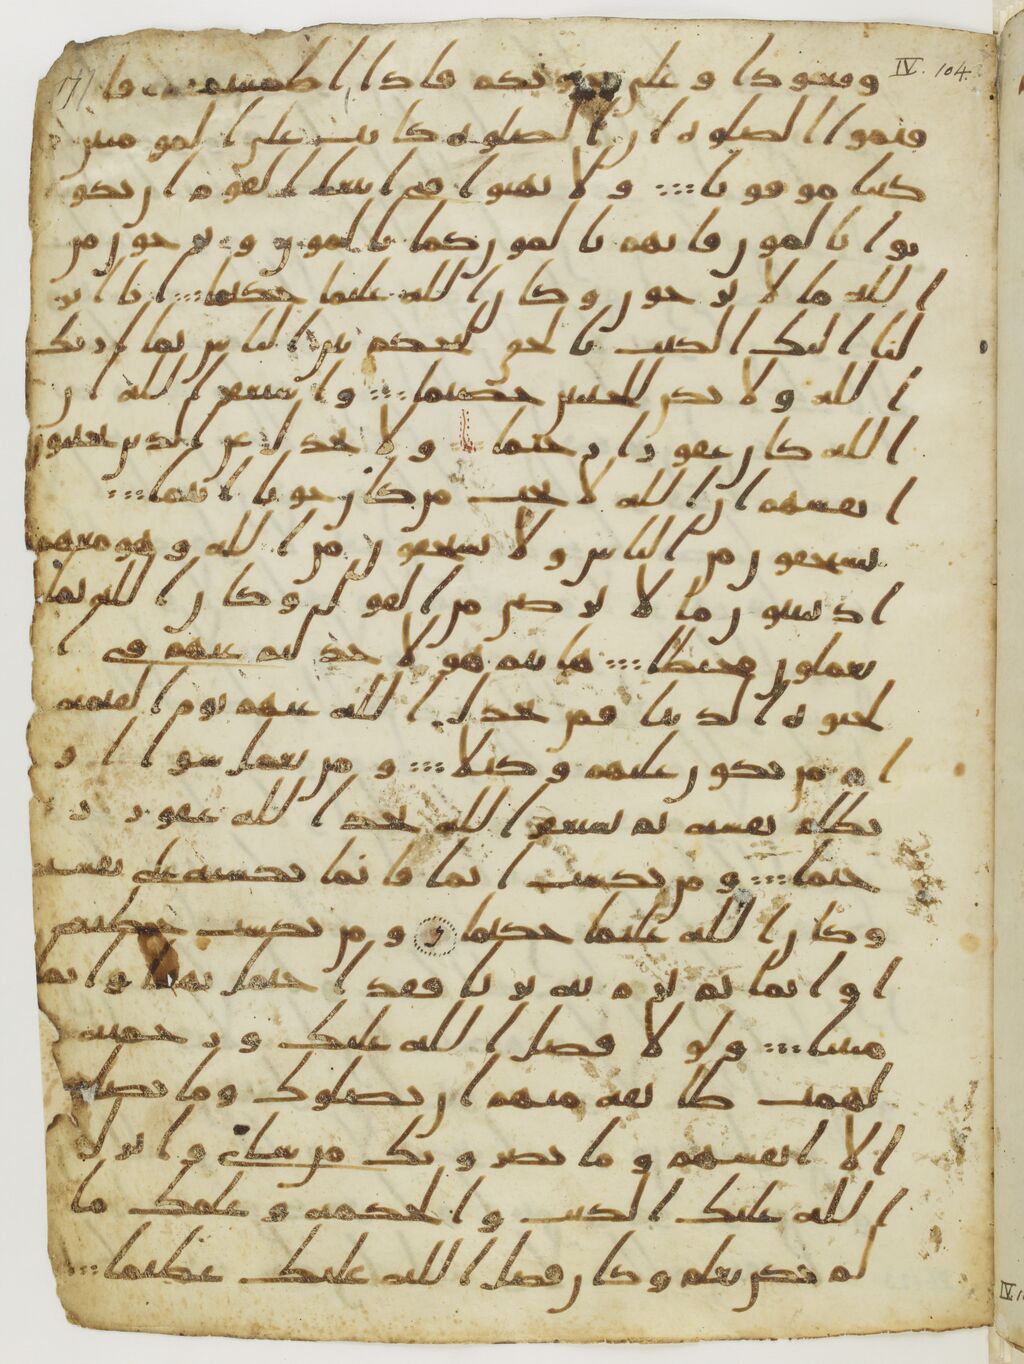 IV. 104.
وقعودا وعلى جنوبكم فاذا اطمننتم فا
قيموا الصلوه ان الصلوه كانت على المومنين
كتبا موقوتا ولا تهنوا في ابتغا القوم ان تكو
نوا تالمون فانهم يالمون كما تالمون وترجون من
الله ما لا يرجون وكان الله عليما حكيما انا انز
لنا اليك الكتب بالحق لتحكم بين الناس بما اريك
الله ولا تكن للخنين خصيما واستغفر الله ان
الله كان غفورا رحيما ولا تجدل عن الذين يختنون
انفسهم ان الله لا يحب من كان خونا اثيما
يستخفون من الناس ولا يستخفون من الله وهو معهم
اذ يبيتون ما لا يرضى من القول وكان الله بما
يعملون محيطا هانتم هولا جدلتم عنهم في ا
لحيوه الدنيا فمن يجدل الله عنهم يوم القيمه
ام من يكون عليهم وكيلا ومن يعمل سوا او
يظلم نفسه ثم يستغفر الله يجد الله غفورا ر
حيما ومن يكسب اثما فانما يكسبه على نفسه
وكان الله عليما حكيما ومن يكسب خطيه
او اثما ثم يرم به بريا فقد احتمل بهتنا واثما
مبينا ولولا فضل الله عليك ورحمته
لهمت طيفه منهم ان يضلوك وما يضلون
الا انفسهم وما يضرونك من شي وانزل
الله عليك الكتب والحكمه وعلمك ما
لم تكن تعلم وكان فضل الله عليك عظيما